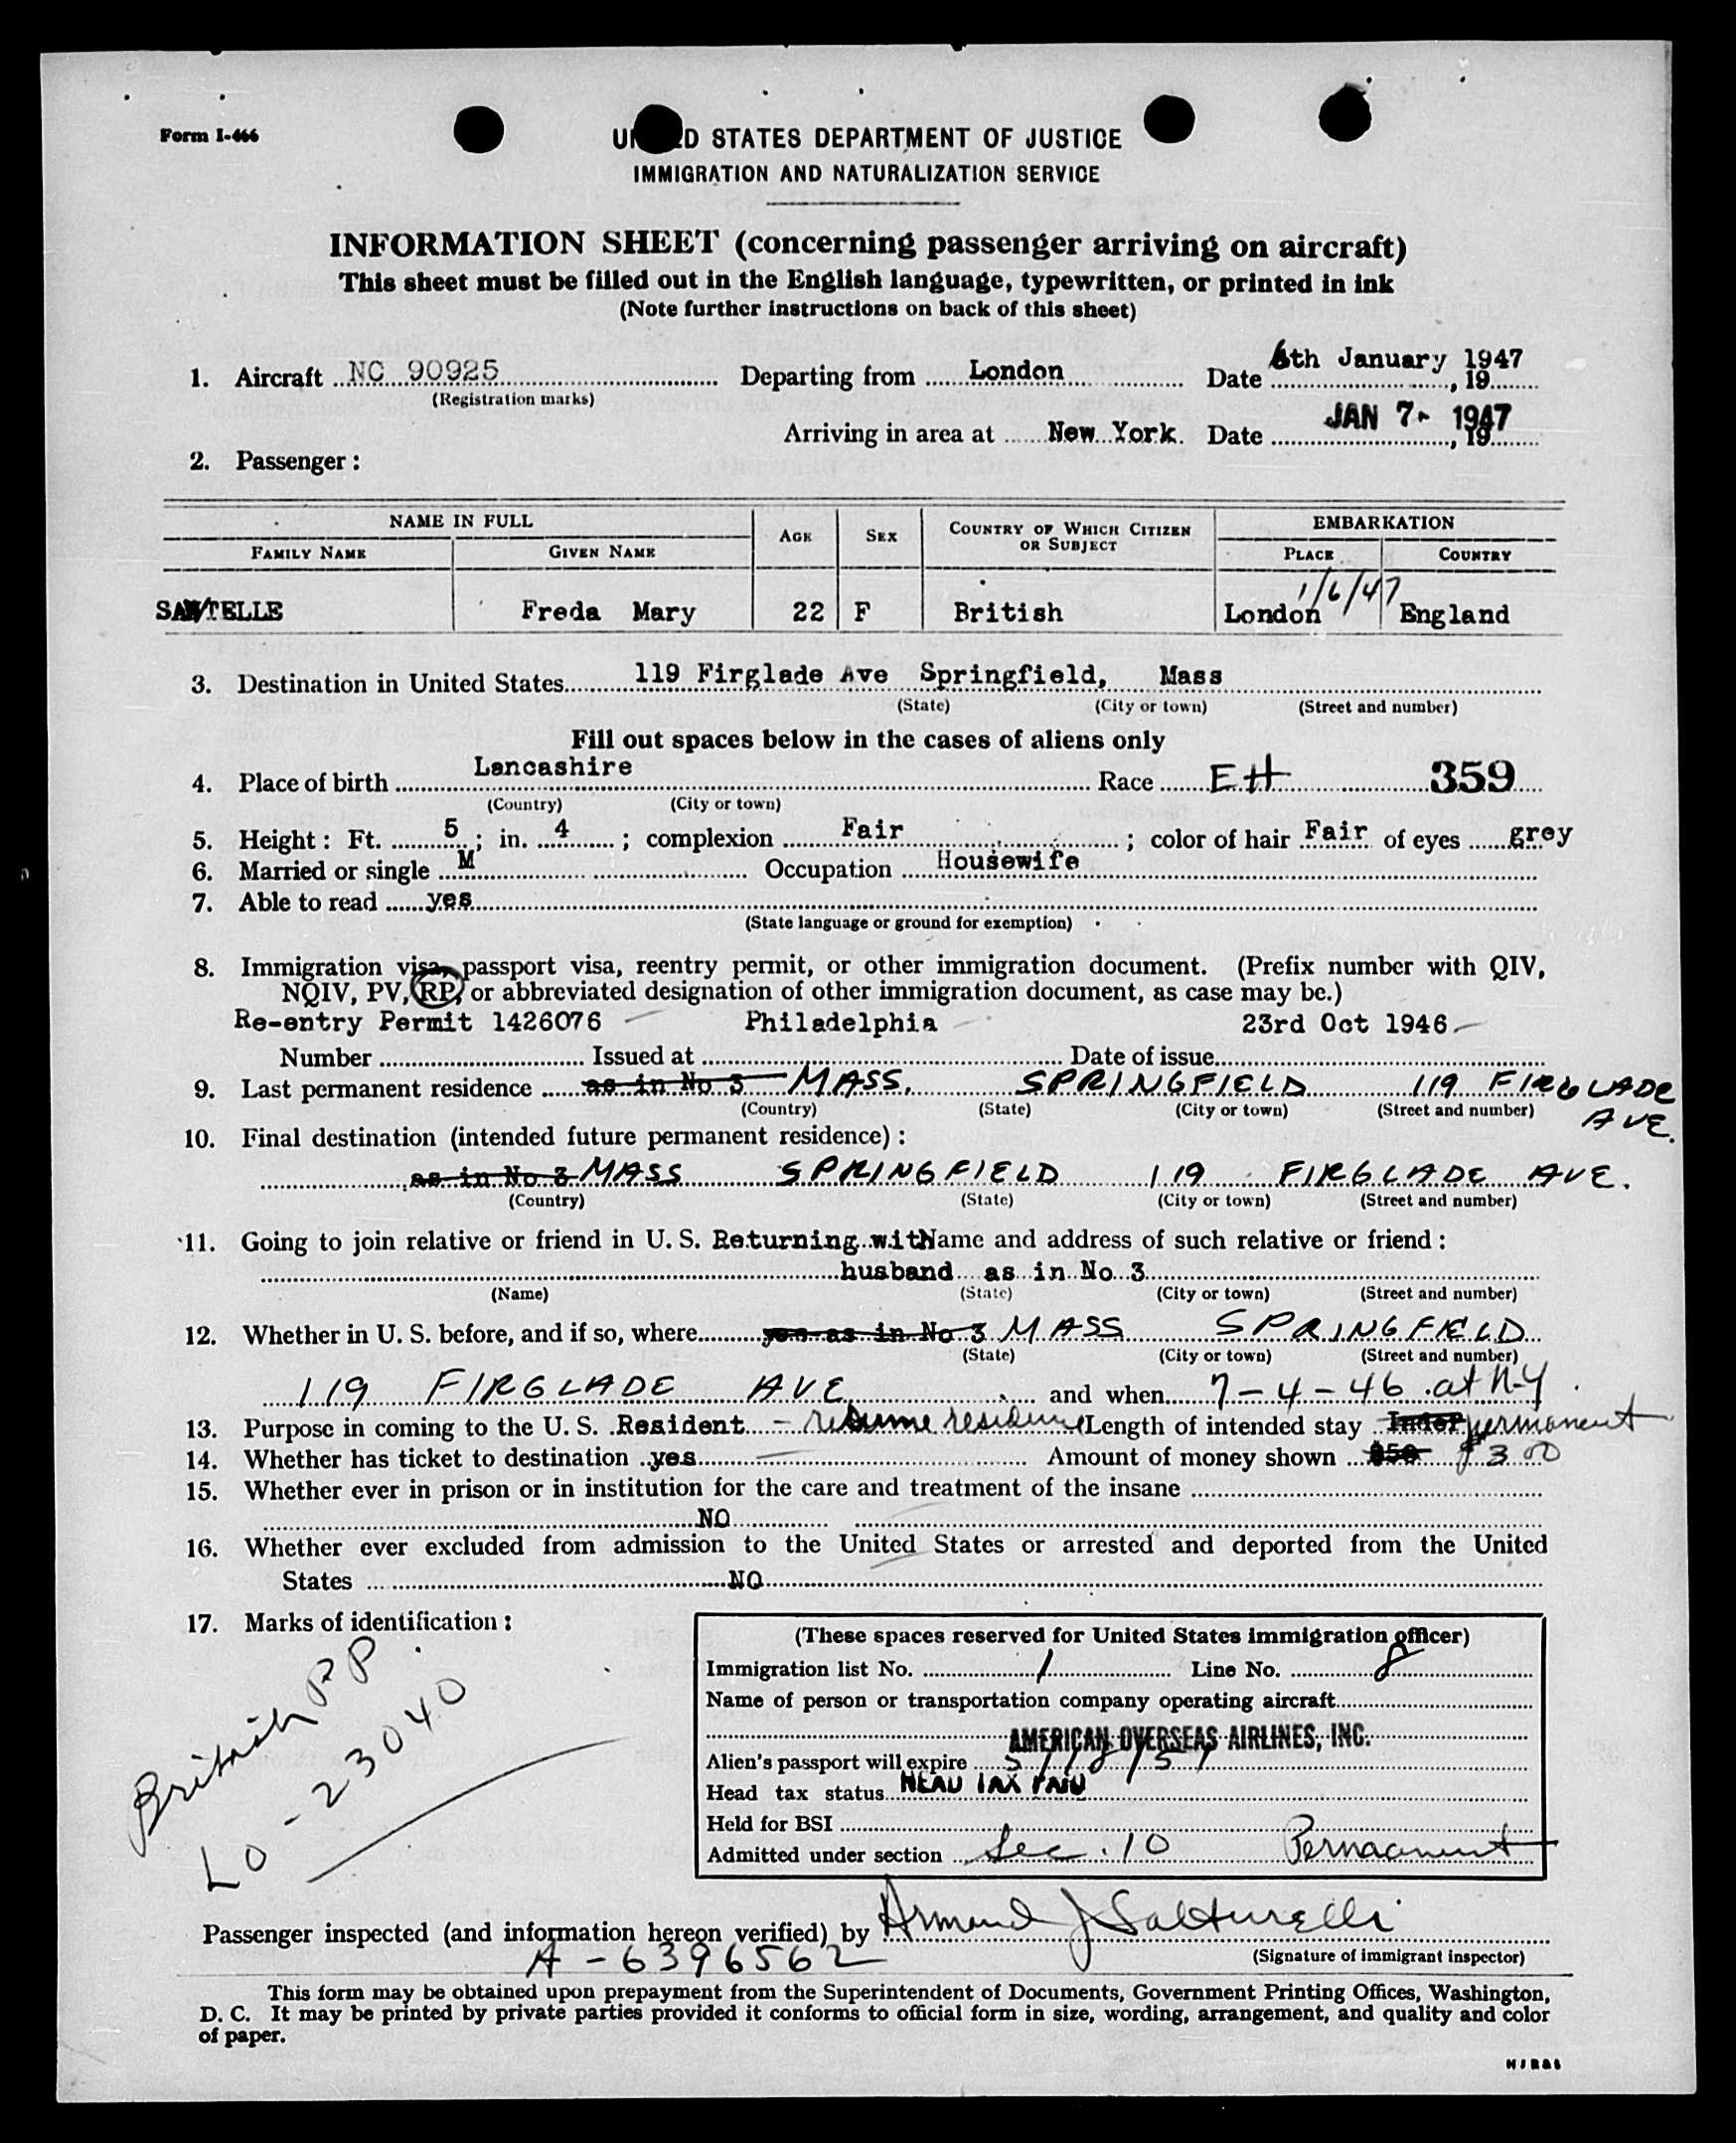 Form I-466
UNITED STATES DEPARTMENT OF JUSTICE
IMMIGRATION AND NATURALIZATION SERVICE
INFORMATION SHEET (concerning passenger arriving on aircraft)
This sheet must be filled out in the English language, typewritten, or printed in ink
(Note further instructions on back of this sheet)
1. Aircraft NC 90925 Departing from London Date 6th January 1947, 19
(Registration marks)
Arriving in area at New York. Date JAN 7- 1947, 19
2. Passenger:
NAME IN FULL AGE SEX COUNTRY OF WHICH CITIZEN OR SUBJECT EMBARKATION
FAMILY NAME GIVEN NAME PLACE COUNTRY
1/6/47
SAWTELLE Freda Mary 22 F British London England
3. Destination in United States 119 Firglade Ave Springfield, Mass
(State) (City or town) (Street and number)
Fill out spaces below in the cases of aliens only
4. Place of birth Lancashire Race EH 359
(Country) (City or town)
5. Height: Ft. 5; in. 4; complexion Fair; color of hair Fair of eyes grey
6. Married or single M Occupation Housewife
7. Able to read yes
(State language or ground for exemption)
8. Immigration visa, passport visa, reentry permit, or other immigration document. (Prefix number with QIV,
NQIV, PV, RP, or abbreviated designation of other immigration document, as case may be.)
Re-entry Permit 1426076 Philadelphia 23rd Oct 1946
Number Issued at Date of issue
9. Last permanent residence as in No 3 MASS, SPRINGFIELD 119 FIRGLADE
(Country) (State) (City or town) (Street and number) AVE.
10. Final destination (intended future permanent residence):
as in No 3 MASS SPRINGFIELD 119 FIRGLADE AVE.
(Country) (State) (City or town) (Street and number)
11. Going to join relative or friend in U. S. Returning with Name and address of such relative or friend:
husband as in No 3
(Name) (State) (City or town) (Street and number)
12. Whether in U. S. before, and if so, where yes as in No 3 MASS SPRINGFIELD
(State) (City or town) (Street and number)
119 FIRGLADE AVE and when 7-4-46 at N-Y
13. Purpose in coming to the U. S. Resident - resume residence Length of intended stay Indef permanent
14. Whether has ticket to destination yes Amount of money shown $50 $3 00
15. Whether ever in prison or in institution for the care and treatment of the insane
NO
16. Whether ever excluded from admission to the United States or arrested and deported from the United
States NO
17. Marks of identification:
British PP
LO-23040
(These spaces reserved for United States immigration officer)
Immigration list No. 1 Line No. 8
Name of person or transportation company operating aircraft
AMERICAN OVERSEAS AIRLINES, INC.
Alien's passport will expire 5/18/51
Head tax status HEAD TAX PAID
Held for BSI
Admitted under section Sec. 10 Permanent
Passenger inspected (and information hereon verified) by Armand J
(Signature of immigrant inspector)
A-6396562
This form may be obtained upon prepayment from the Superintendent of Documents, Government Printing Offices, Washington,
D. C. It may be printed by private parties provided it conforms to official form in size, wording, arrangement, and quality and color
of paper.